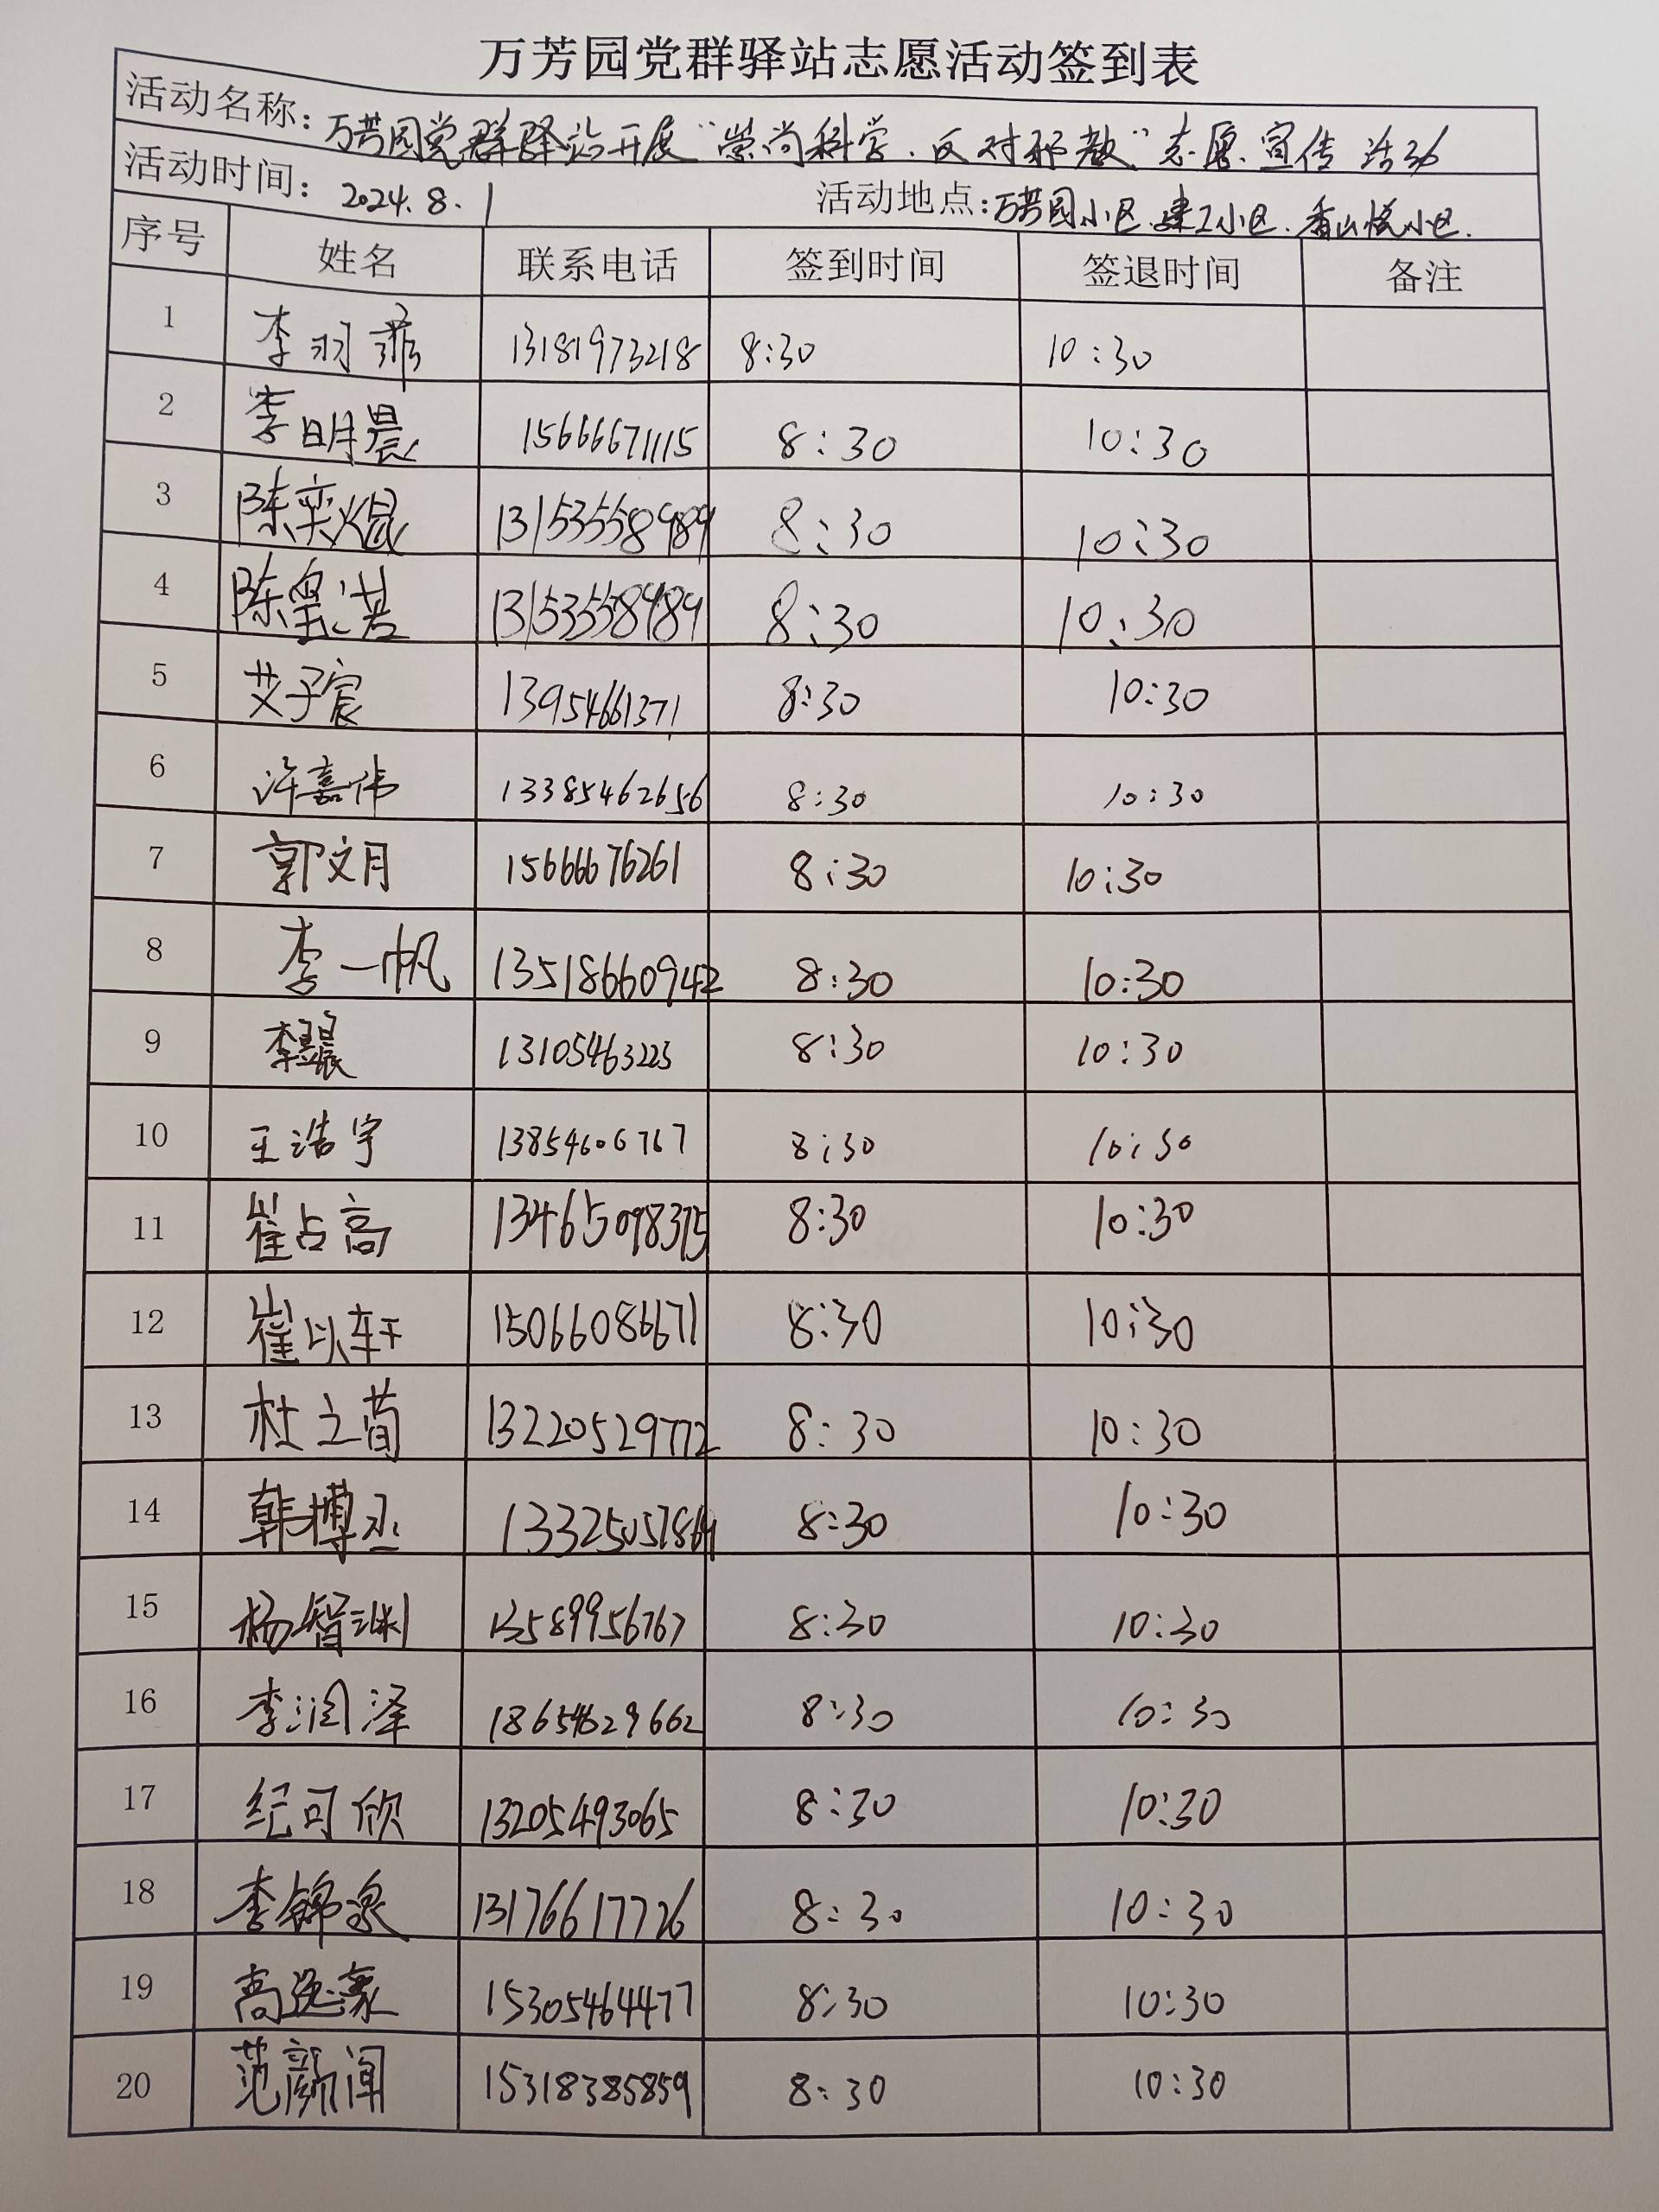 万芳园党群驿站志愿活动签到表
活动名称：万芳园党群驿站开展"崇尚科学、反对邪教"志愿宣传活动
活动时间：2024.8.1 活动地点：万芳园小区.建工小区.香山悦小区.
序号 姓名 联系电话 签到时间 签退时间 备注
1 李羽 13181973218 8:30 10:30
2 李明晨 15666671115 8:30 10:30
3 陈奕焜 13153558989 8:30 10:30
4 陈 13153558989 8:30 10:30
5 艾子宸 13954661371 8:30 10:30
6 许嘉伟 13385462656 8:30 10:30
7 郭文月 15666676261 8:30 10:30
8 李一帆 13518660942 8:30 10:30
9 李 13105463223 8:30 10:30
10 王浩宇 13854606767 8:30 10:30
11 崔占高 13465098375 8:30 10:30
12 崔以轩 15066086671 8:30 10:30
13 杜之荀 13220529772 8:30 10:30
14 韩博丞 13325057864 8:30 10:30
15 杨智渊 13589956767 8:30 10:30
16 李润泽 18654629662 8:30 10:30
17 纪可欣 13205493065 8:30 10:30
18 李锦泉 13176617726 8:30 10:30
19 高逸豪 15305464477 8:30 10:30
20 范颜闻 15318385859 8:30 10:30